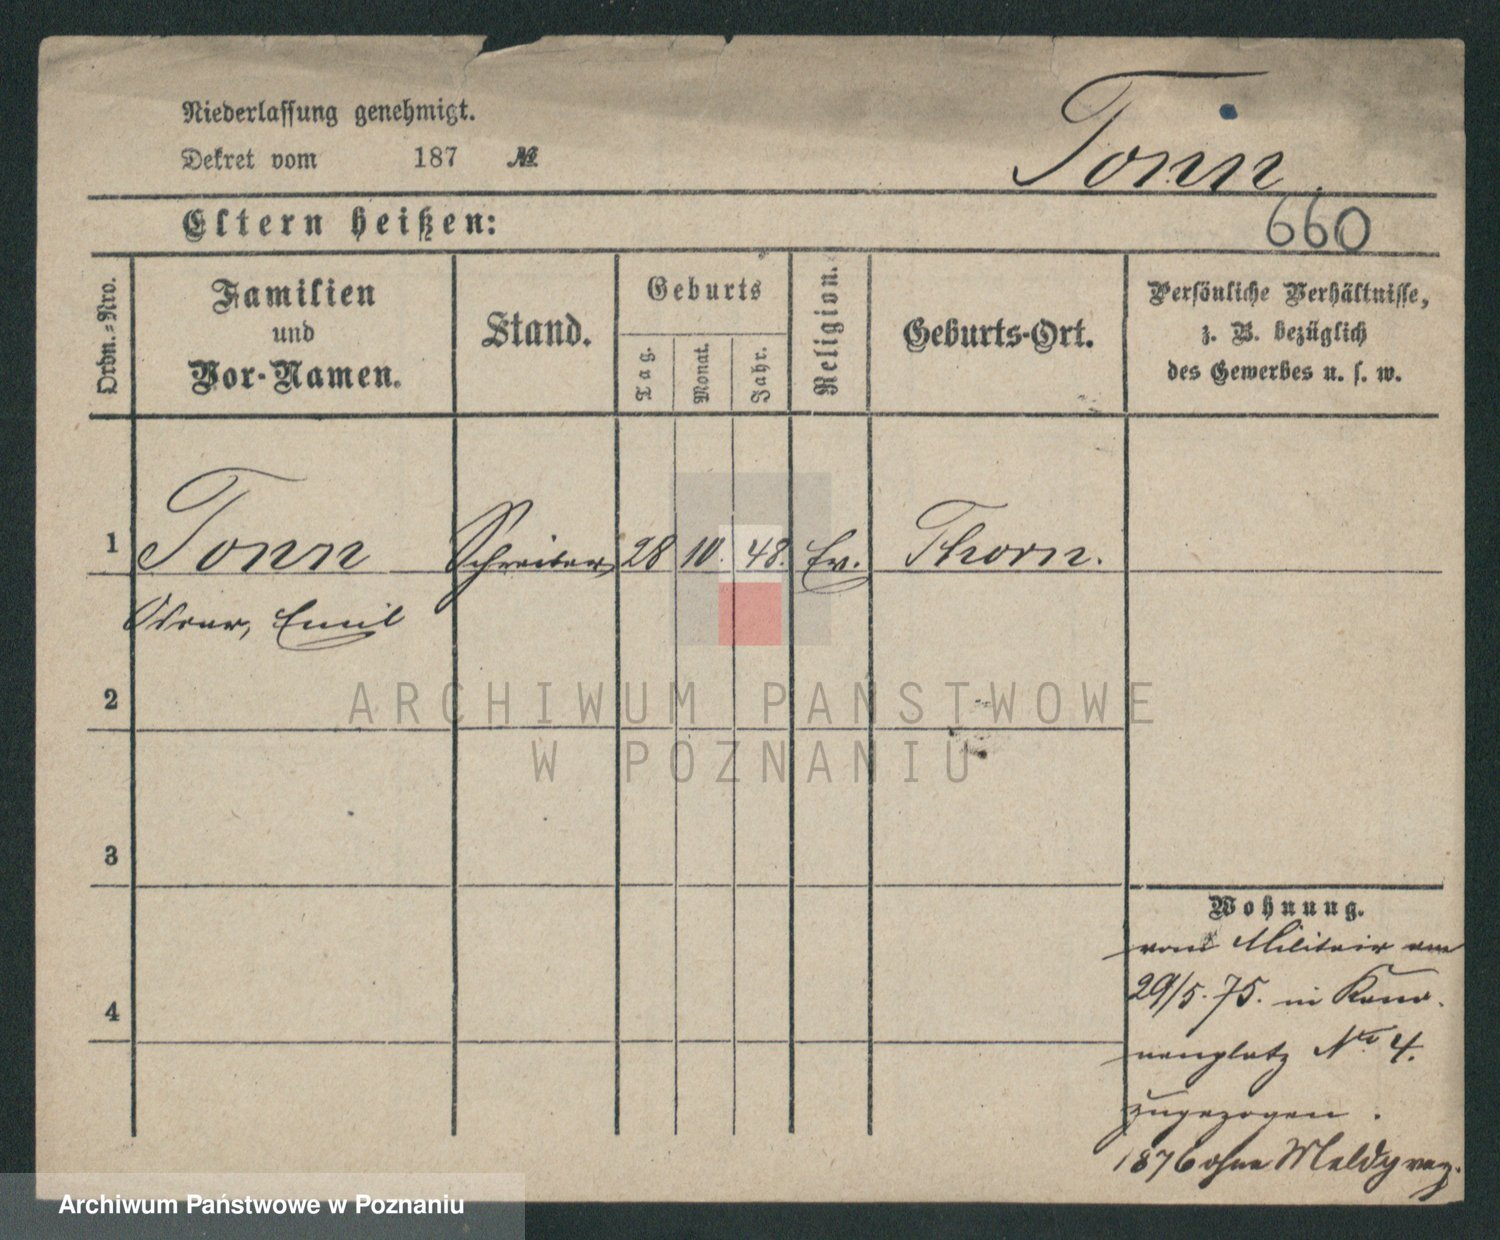 Niederlassung genehmigt.
Dekret vom 187 №
Tonn.
Eltern heißen:
660
Ordn.-Nro.
Familien
und
Vor-Namen.
Stand.
Geburts
Tag.
Monat.
Jahr.
Religion.
Geburts-Ort.
Persönliche Verhältnisse,
z. B. bezüglich
des Gewerbes u. s. w.
1 Tonn Schreiber 28 10. 48. Ev. Thorn.
Oscar, Emil
2
ARCHIWUM PAŃSTWOWE
W POZNANIU
3
Wohnung.
vom Militair am
29/5. 75. in Kano-
4
nenplatz No 4.
zugezogen.
1876 ohne Meldg
Archiwum Państwowe w Poznaniu